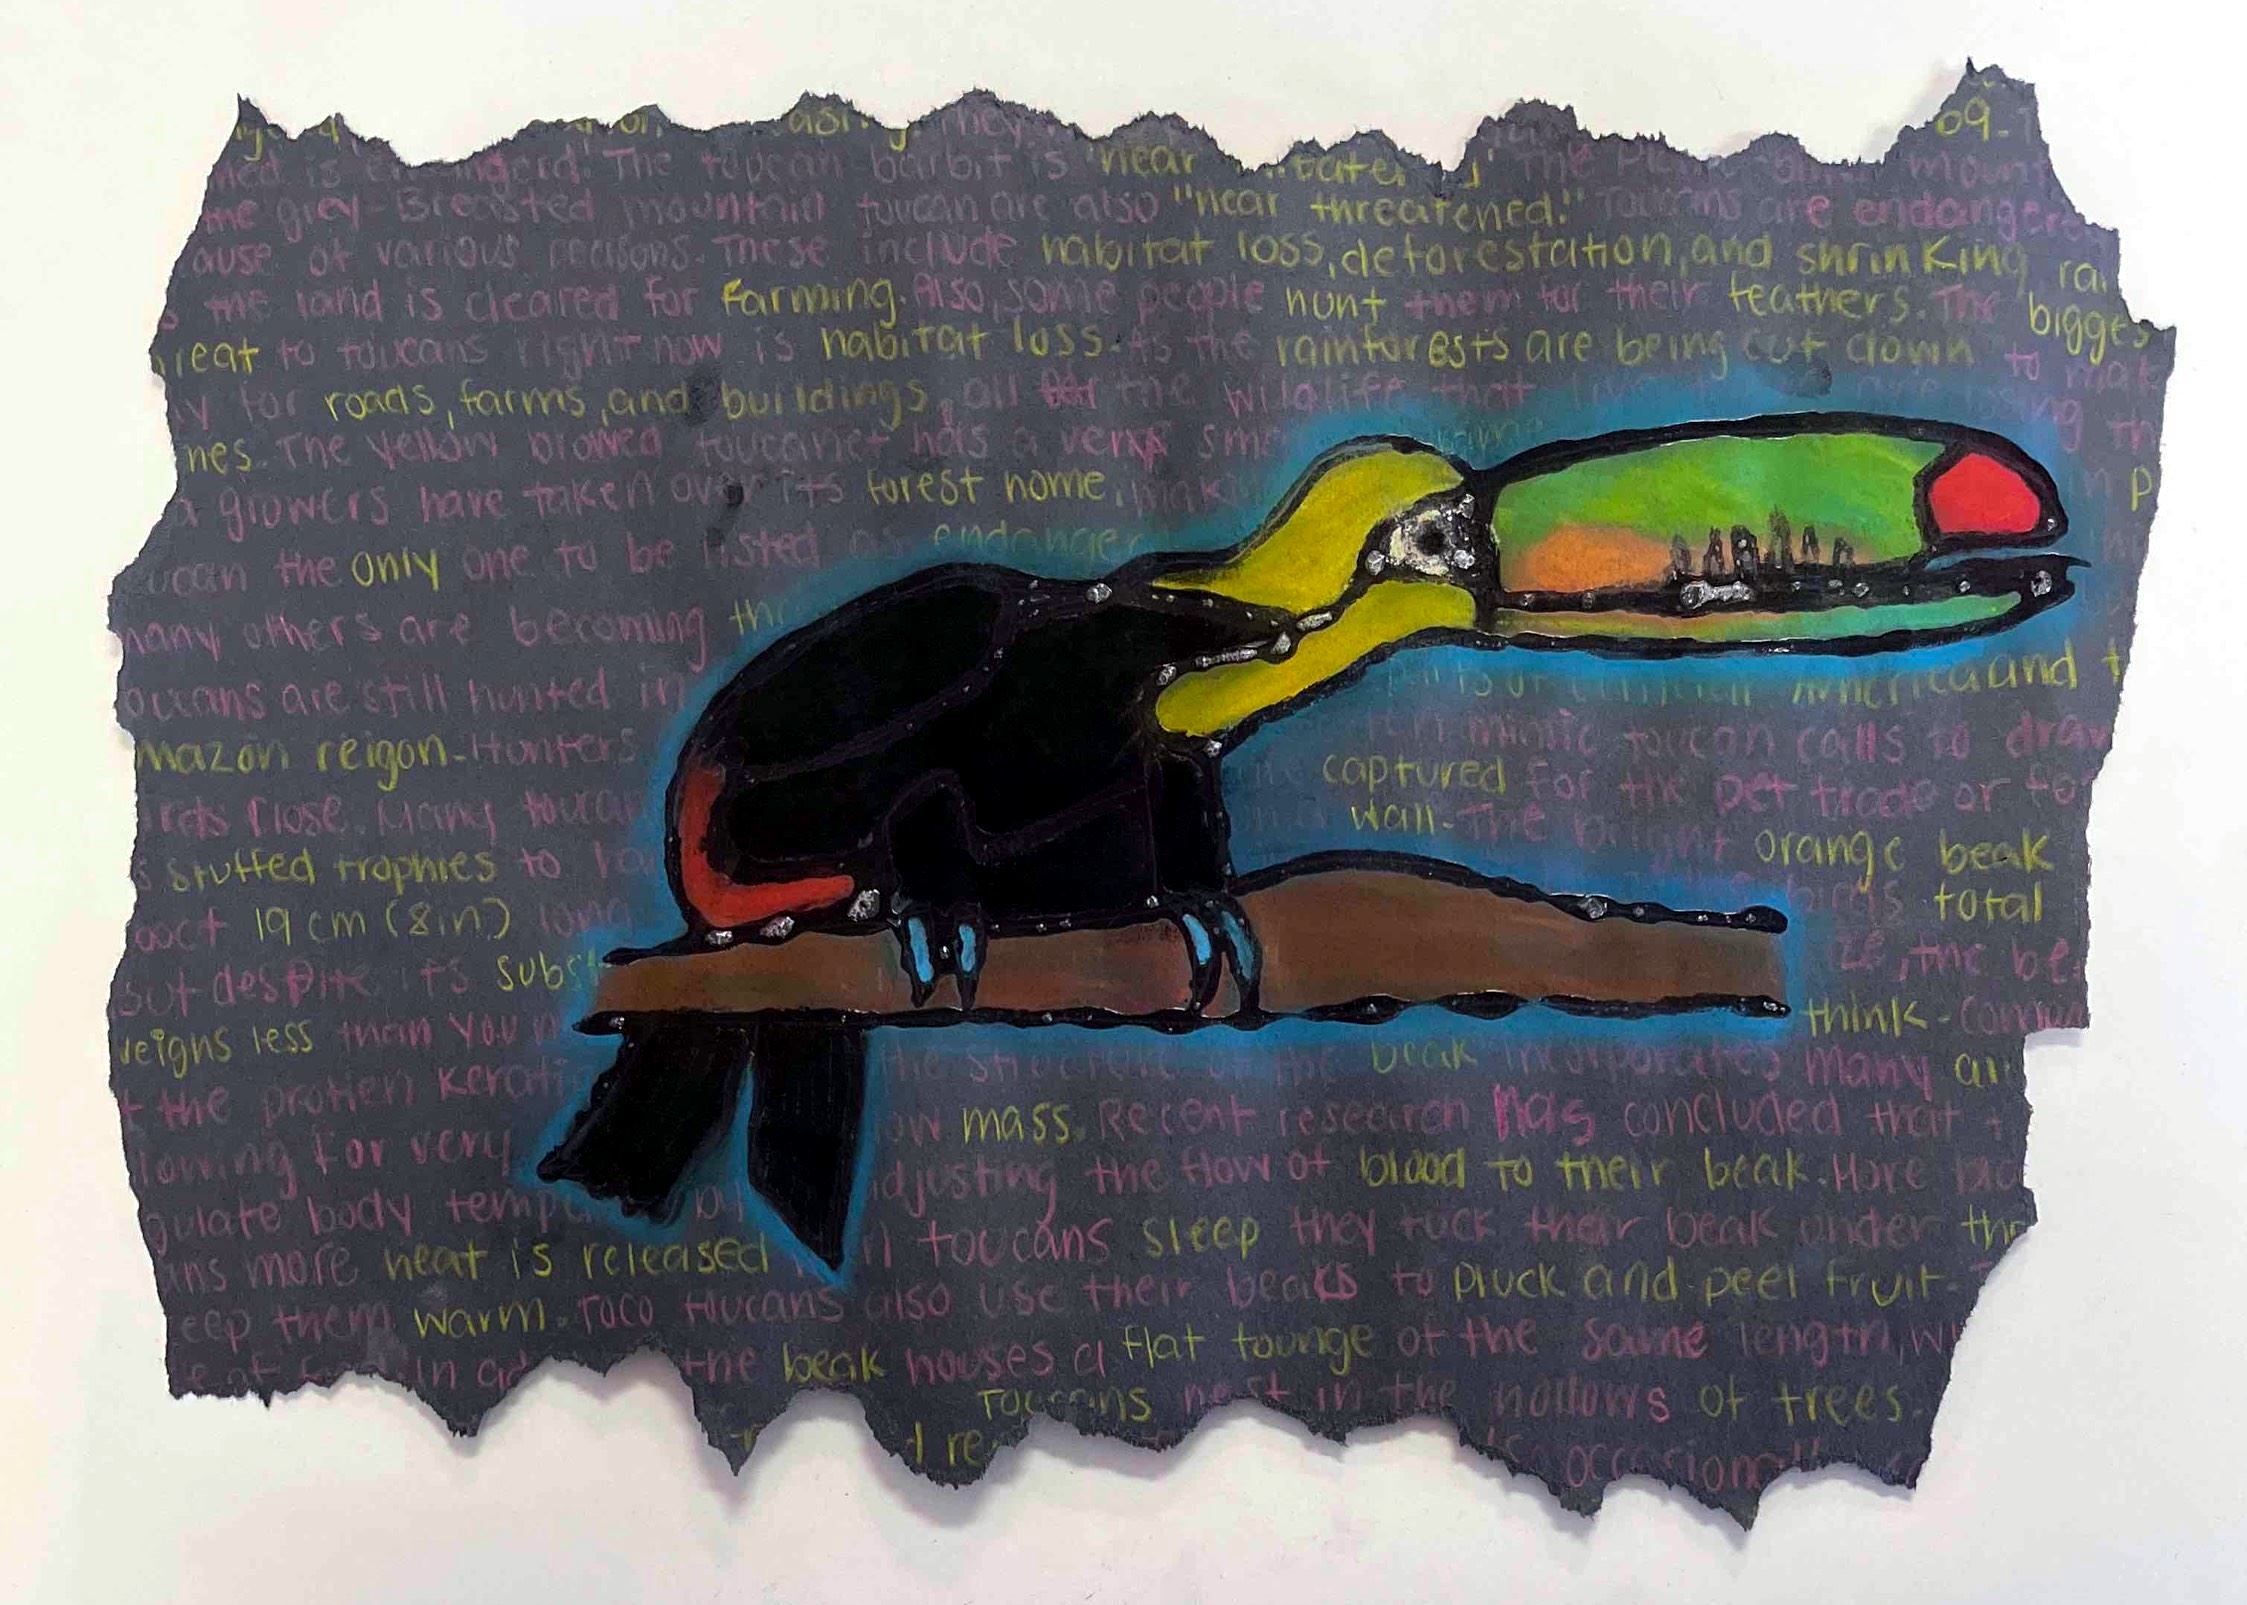 asing. They
09-
is endangerd. The toucan barbit is "near
me grey-Breasted mountain toucan are also "near threatened." Toucans are endangere
ause of various reasons. These include habitat loss, deforestation, and shrinking rai
s the land is cleared for Farming. Also, some people hunt them for their feathers. The bigges
reat to toucans right now is habitat loss. As the rainforests are being cut down to mak
y for roads, farms, and buildings, all the wildlife that live
mes. The Yellow browed toucanet has a very sma
a growers have taken over its forest home, maki
ucan the only one to be listed as endanger
many others are becoming thr
oucans are still hunted in parts of America and t
mazon reigon. Hunters mimic toucan calls to draw
rds close. Many toucan captured for the pet trade or fo
s stuffed trophies to wall. The bright orange beak
19 cm (8in) long birds total
but despite its subst ze, the be
veigns less than you think. Com
t the protien kerati the structure of the beak incorporates many air
lowing for very low mass. Recent research has concluded that t
gulate body temp by adjusting the flow of blood to their beak. More
ans more heat is released toucans sleep they tuck their beak under the
eep them warm. Toco toucans also use their beaks to pluck and peel fruit.
In the beak houses a flat tounge of the same length, w
Toucans nest in the hollows of trees.
occasionally